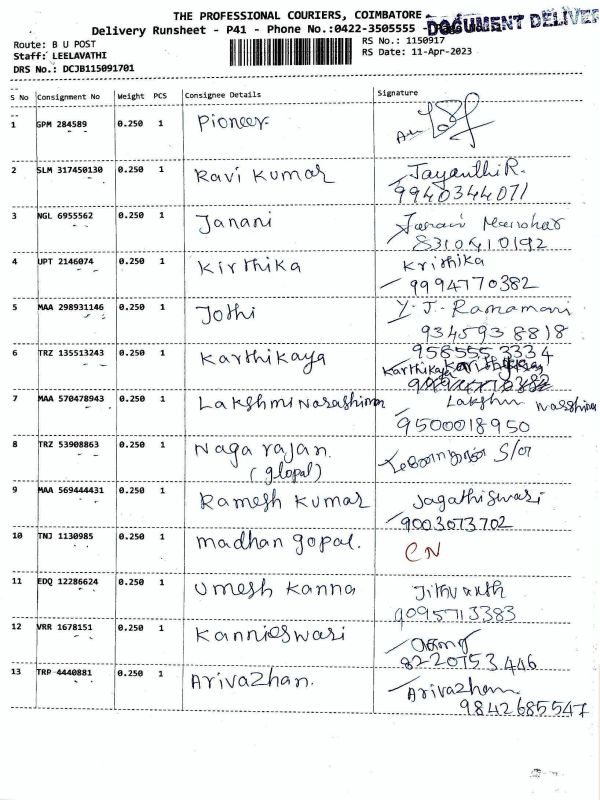 THE PROFESSIONAL COURIERS, COIMBATORE
DOCUMENT DELIVER
Delivery Runsheet - P41 - Phone No.:0422-3505555 -
Route: B U POST
RS No.: 1150917
Staff: LEELAVATHI
RS Date: 11-Apr-2023
DRS No.: DCJB115091701
S No Consignment No Weight PCS Consignee Details Signature
1 GPM 284589 0.250 1 Pioneer
2 SLM 317450130 0.250 1 Ravi Kumar Jayanthi R.
9940344071
3 NGL 6955562 0.250 1 Janani Janani Manohar
8310410192
4 UPT 2146074 0.250 1 Kirthika Krithika
9994770382
5 MAA 298931146 0.250 1 Jothi Y. J. Ramamani
9345938818
6 TRZ 135513243 0.250 1 Karthikaya 9585553334
Karthikaya
7 MAA 570478943 0.250 1 Lakshmi Narashiman Lakshmi
9500018950
8 TRZ 53908863 0.250 1 Naga rajan. S/o
(glopal)
9 MAA 569444431 0.250 1 Ramesh Kumar Jagathiswari
9003073702
10 TNJ 1130985 0.250 1 madhan gopal. CN
11 EDQ 12286624 0.250 1 Umesh Kanna
9095713383
12 VRR 1678151 0.250 1 Kannieswari
8220753446
13 TRP 4440881 0.250 1 Arivazhan. Arivazhan
9842685547